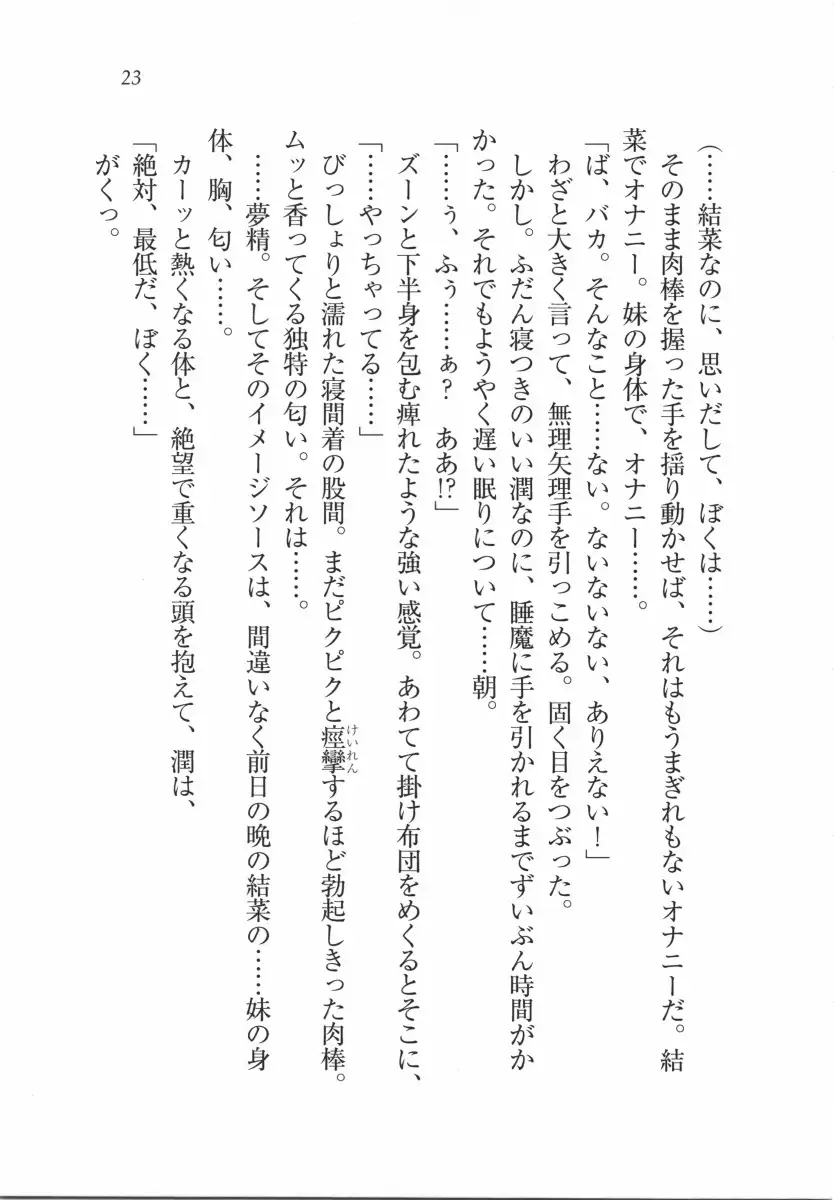 23
(……結菜なのに、思いだして、ぼくは……)
そのまま肉棒を握った手を揺り動かせば、それはもうまぎれもないオナニーだ。結
菜でオナニー。妹の身体で、オナニー……。
「ば、バカ。そんなこと……ない。ないないない、ありえない！」
わざと大きく言って、無理矢理手を引っこめる。固く目をつぶった。
しかし。ふだん寝つきのいい潤なのに、睡魔に手を引かれるまでずいぶん時間がか
かった。それでもようやく遅い眠りについて……朝。
「……ぅ、ふぅ……ぁ？　ああ!?」
ズーンと下半身を包む痺れたような強い感覚。あわてて掛け布団をめくるとそこに、
「……やっちゃってる……」
びっしょりと濡れた寝間着の股間。まだピクピクと痙攣するほど勃起しきった肉棒。
けいれん
ムッと香ってくる独特の匂い。それは……。
……夢精。そしてそのイメージソースは、間違いなく前日の晩の結菜の……妹の身
体、胸、匂い……。
カーッと熱くなる体と、絶望で重くなる頭を抱えて、潤は、
「絶対、最低だ、ぼく……」
がくっ。